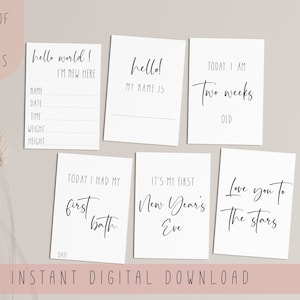 DF
S
hello world!
I'M NEW HERE
NAME
DATE
TIME
WEIGHT
HEIGHT
hello!
MY NAME IS
TODAY I AM
Two weeks
OLD
TODAY I HAD MY
first
bath
DATE
IT'S MY FIRST
New Year's
Eve
Love you to
the stars
INSTANT DIGITAL DOWNLOAD